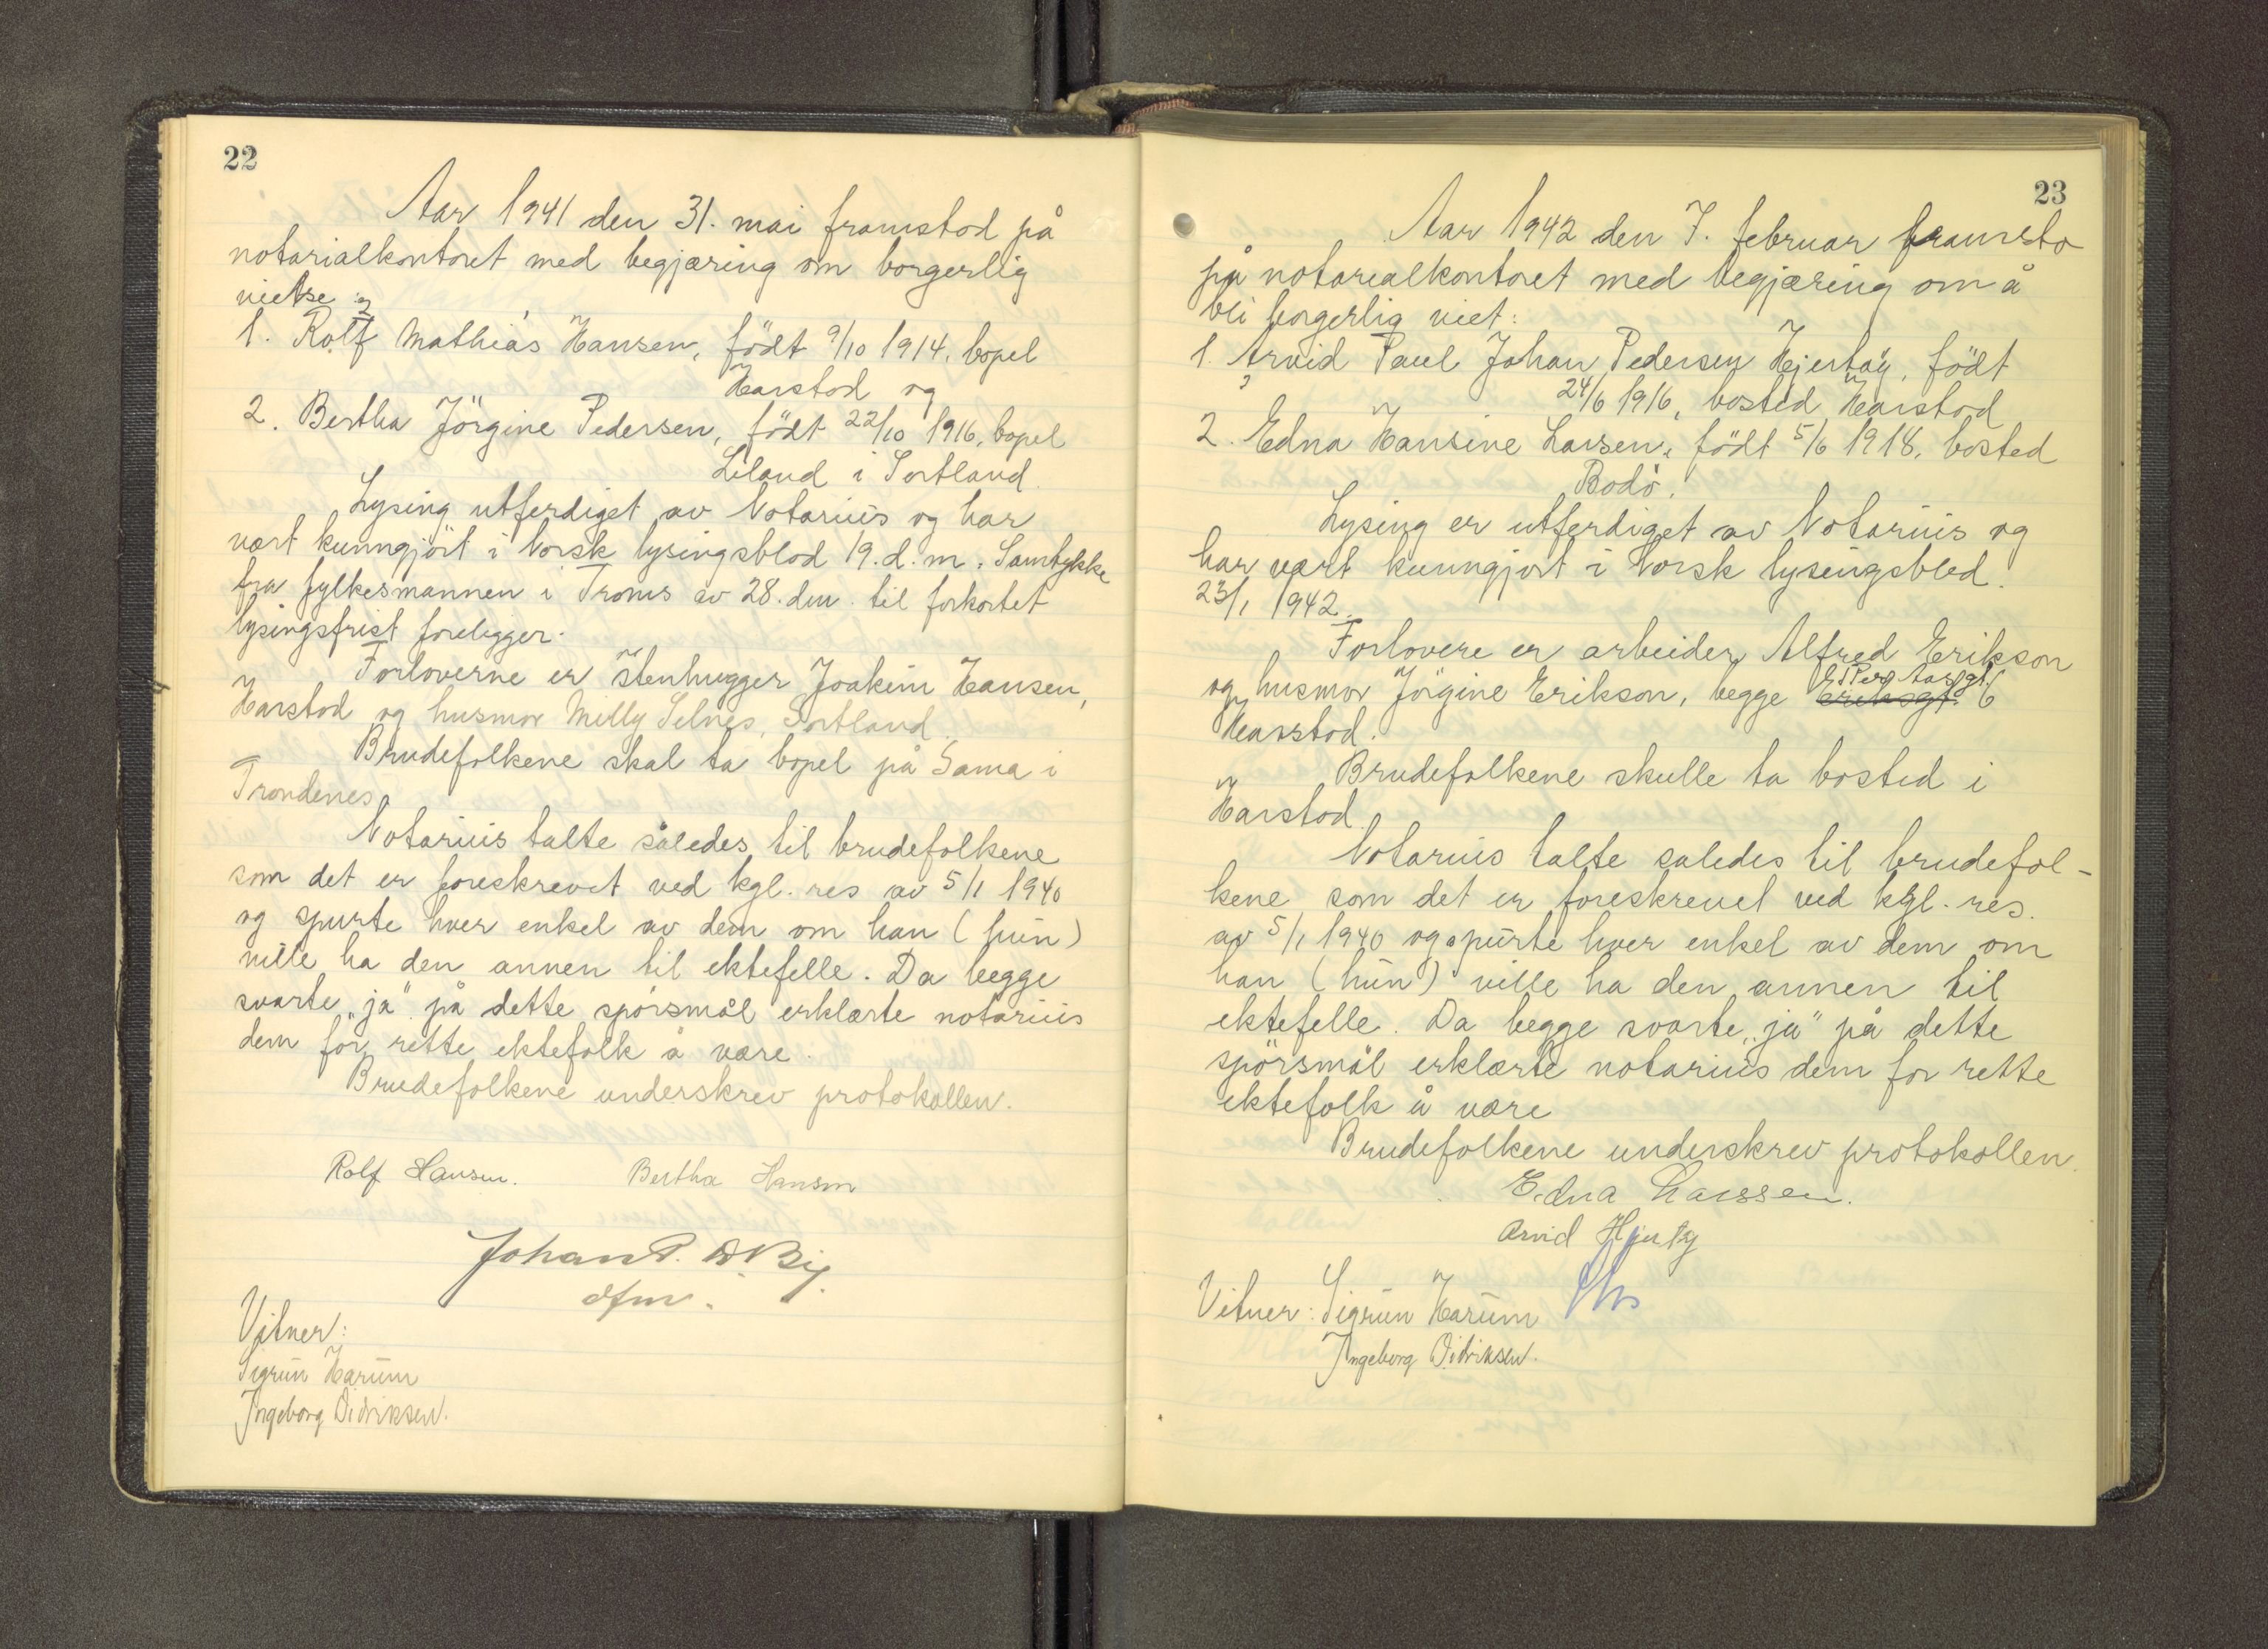 22
Aar 1941 den 31. mai framstod på
notarialkontoret med begjæring om borgerlig
vielse:
1. Rolf Mathias Hansen, födt 9/10 1914, bopel
Harstad og
2. Bertha Jörgine Pedersen, födt 22/10 1916, bopel
Liland i Sortland.
Lysing utferdiget av Notarius og har
vært kunngjört i Norsk lysingsblad 19.d.m. Samtykke
fra fylkesmannen i Troms av 28. dm. til forkortet
lysingsfrist foreligger.
Forloverne er stenhugger Joakim Hansen,
Harstad og husmor Milly Selnes, Sortland.
Brudefolkene skal ta bopel på Sama i
Trondenes
Notarius talte således til brudefolkene
som det er foreskrevet ved kgl. res av 5/1 1940
og spurte hver enkel av dem om han (hun)
ville ha den annen til ektefelle. Da begge
svarte „ja" på dette spörsmål erklærte notarius
dem for rette ektefolk å være.
Brudefolkene underskrev protokollen.
Rolf Hansen. Bertha Hansen
Johan P.
dfm.
Vitner:
Sigrun Harum
Ingeborg Didriksen.
23
Aar 1942 den 7. februar framsto
på notarialkontoret med begjæring om å
bli borgerlig viet:
1. Arvid Paul Johan Pedersen Hjertøy, födt
24/6 1916, bosted Harstad
2. Edna Hansine Larsen, födt 5/6 1918, bosted
Bodö.
Lysing er utferdiget av Notarius og
har vært kunngjort i Norsk lysingsblad.
23/1 1942.
Forlovere er arbeider Alfred Erikson
og husmor Jörgine Erikson, begge 6
Harstad.
Brudefolkene skulle ta bosted i
Harstad.
Notarius talte saledes til brudefol-
kene som det er foreskrevet ved kgl. res.
av 5/1 1940 og spurte hver enkel av dem om
han (hun) ville ha den annen til
ektefelle. Da begge svarte „ja" på dette
spörsmål erklærte notarius dem for rette
ektefolk å være
Brudefolkene underskrev protokollen.
Edna Larssen.
Arvid Hjertøy
Vitner: Sigrun Harum
Ingeborg Didriksen.